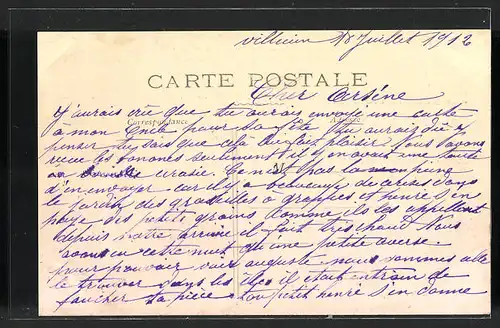 Juillet 1912
CARTE POSTALE
Correspondance
Cher Arsène
J'aurais cru que tu aurais envoyé une carte
à mon Oncle pour sa fête tu aurais dû y
penser tu sais que cela lui fait plaisir. Nous avons
reçu les bananes seulement il y en avait une toute
écrasée. Ce n'est pas la peine
d'en envoyer car il y a beaucoup de cerises dans
le jardin des groseilles à grappes et henri s'en
paye des petits grains comme ils les appellent
depuis notre arrivée il fait très chaud. Nous
avons eu cette nuit qu'une petite averse.
pour pouvoir voir auguste nous sommes allé
le trouver dans les il était entrain de
faucher sa pièce tout petit henri s'en donne